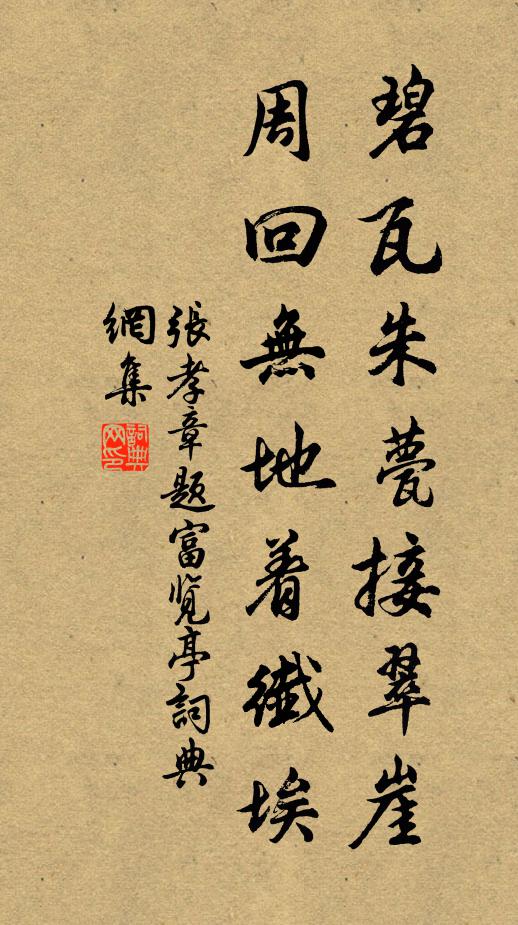 碧瓦朱甍接翠崖
周回無地着纖埃
張孝章題富览亭詞典
網集
詞典
网印